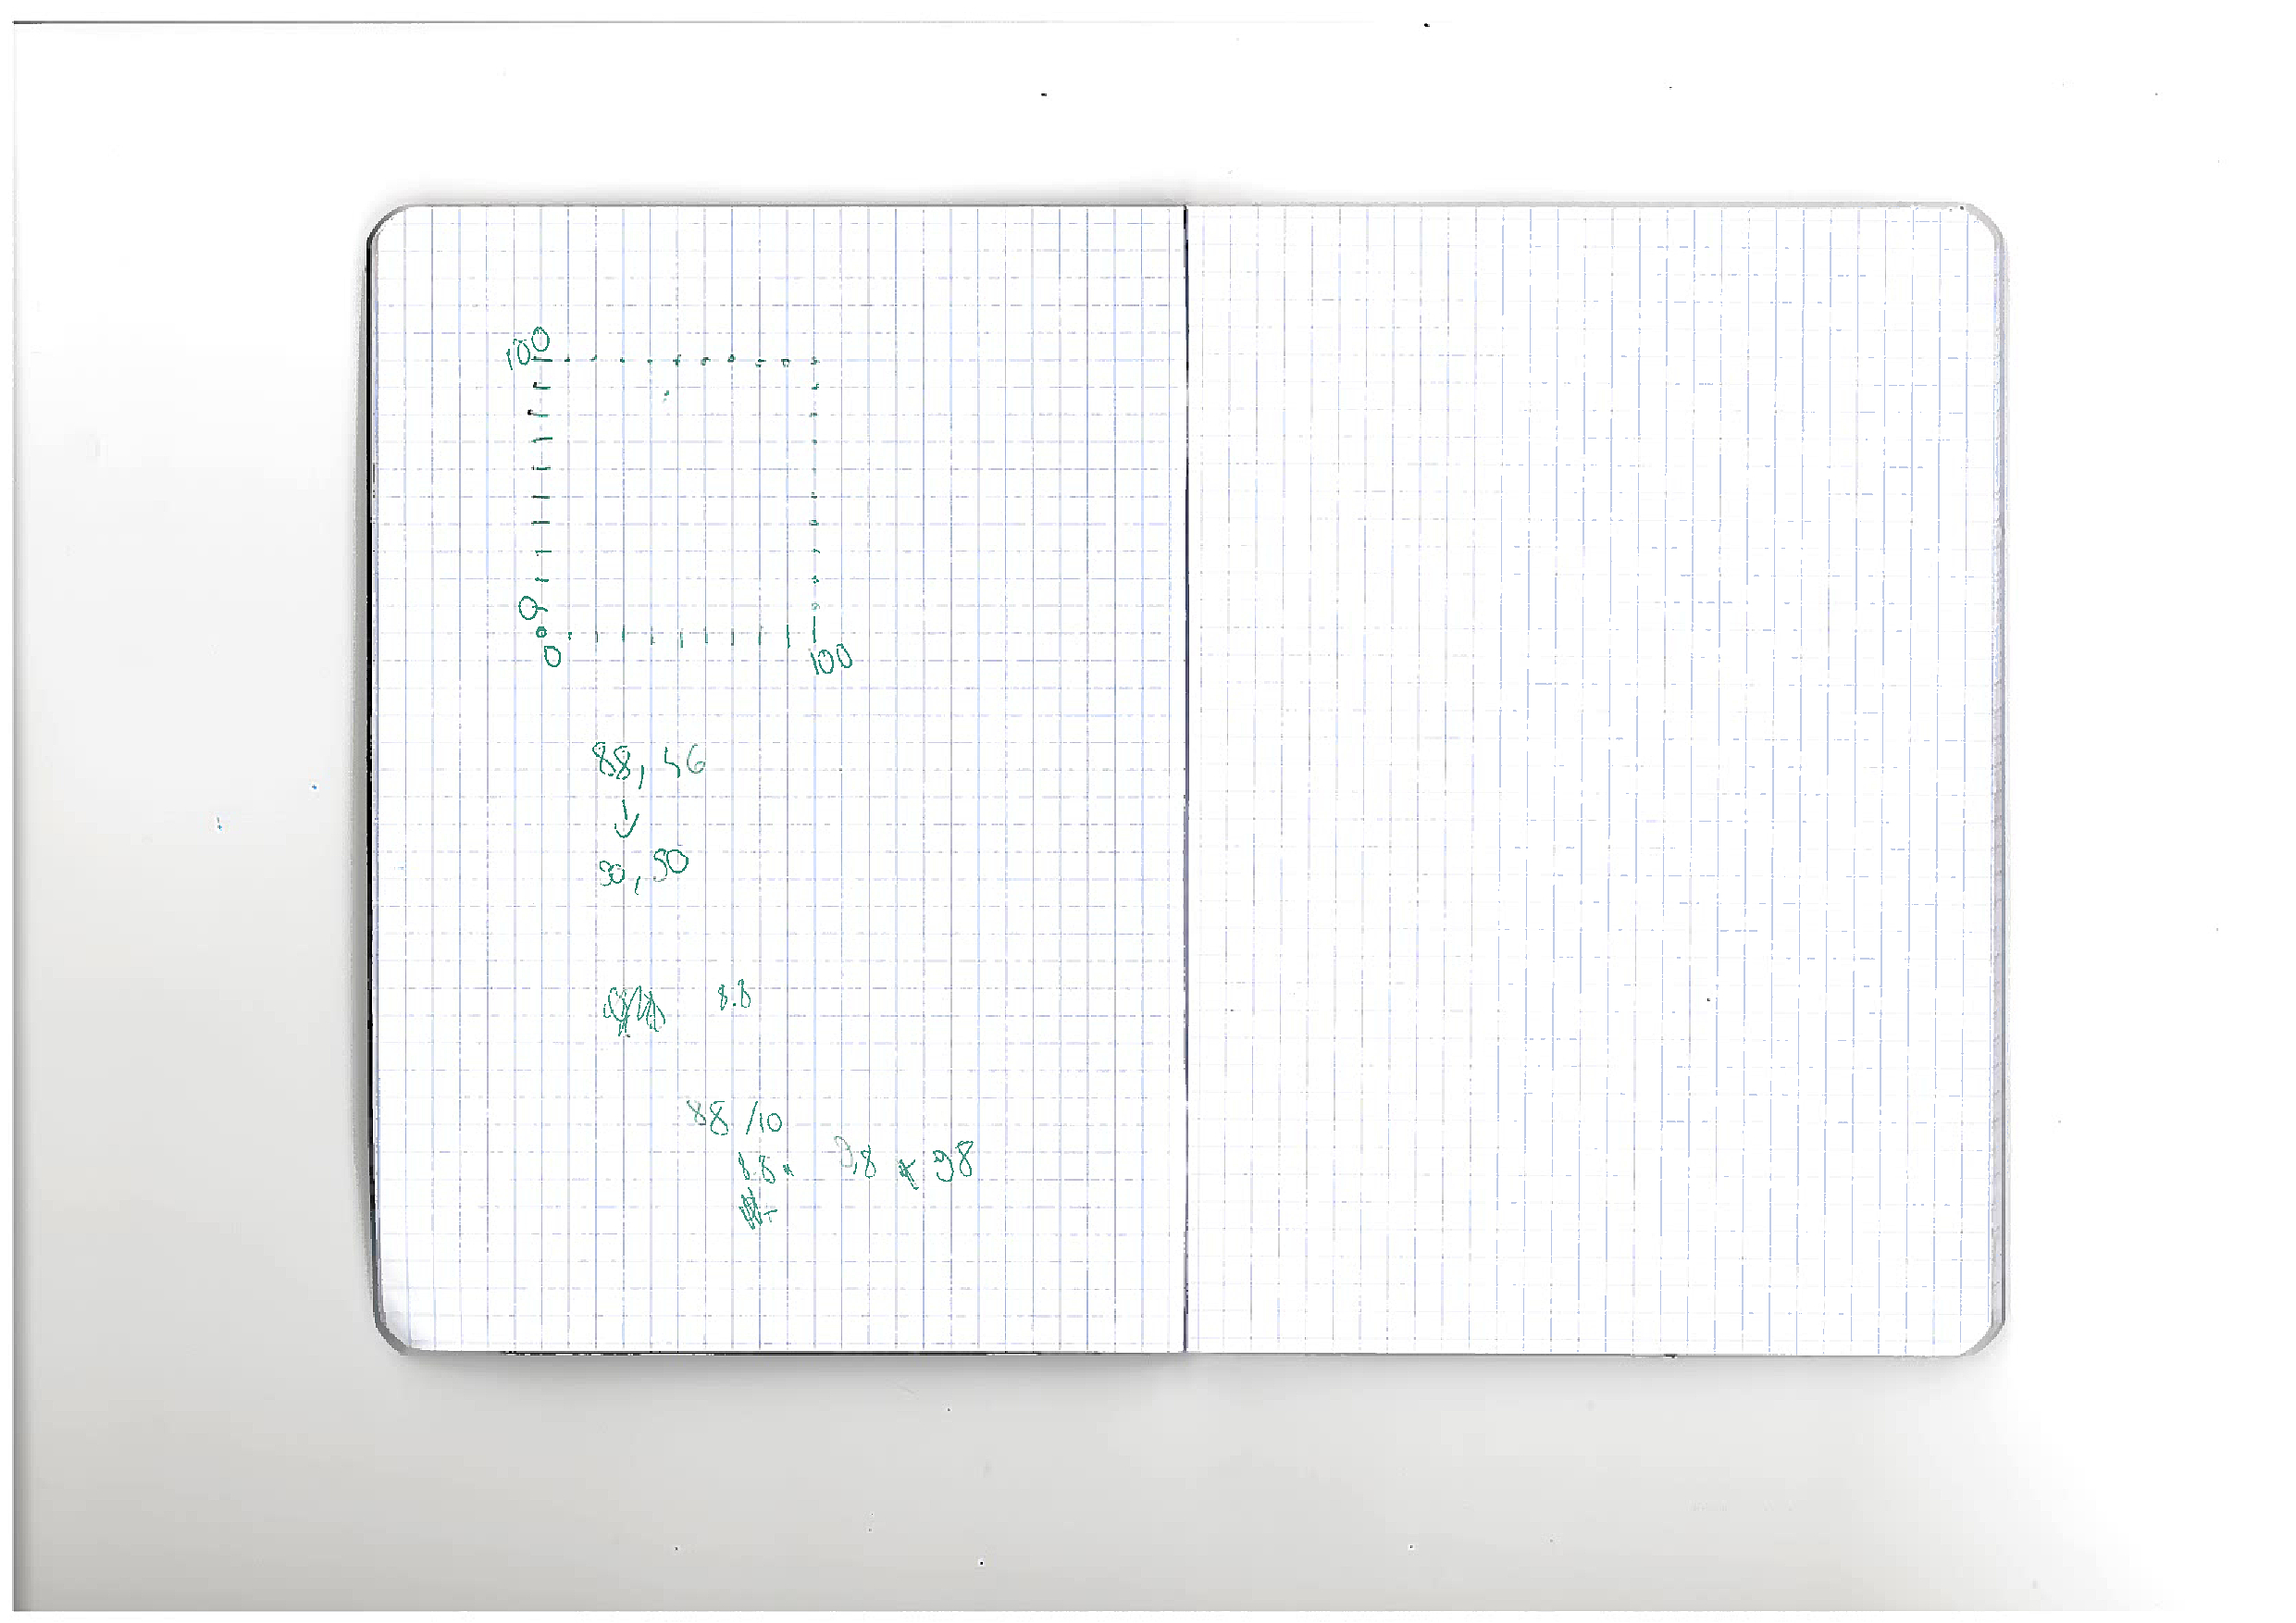 100
0
0
100
88, 46
↓
90, 50
8.8
88 /10
8.8
9,8 * 98